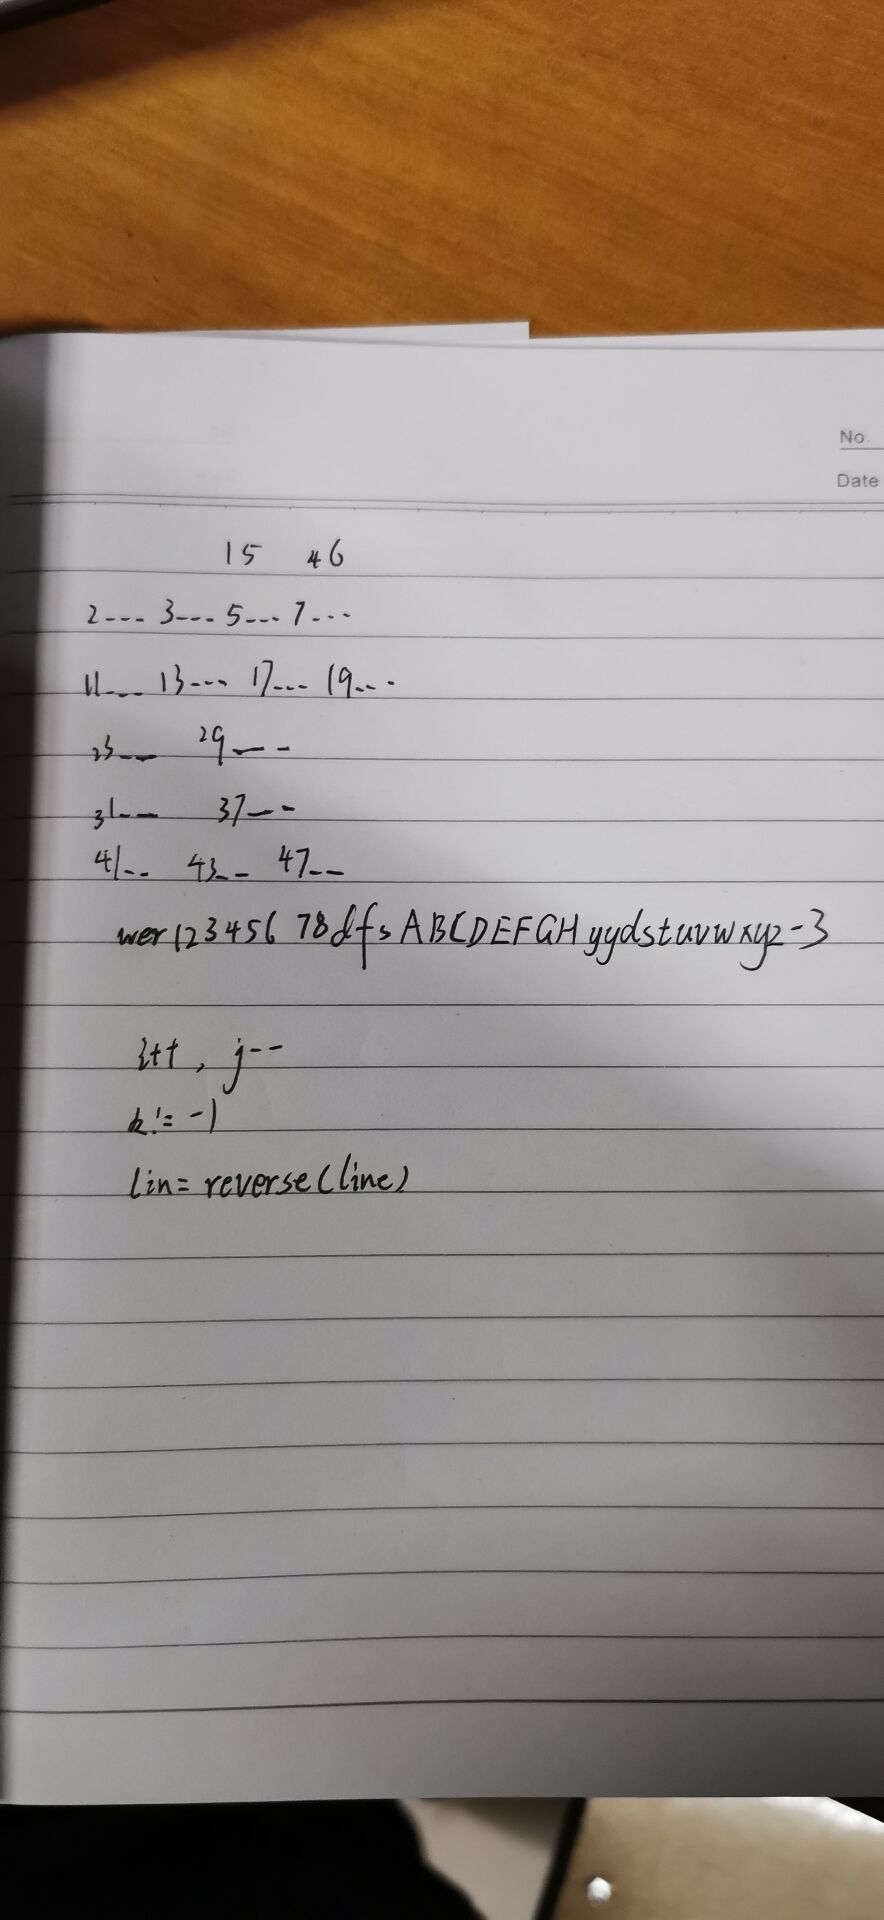 No.
Date
15 46
2--- 3---- 5---- 7---
11--- 13--- 17--- 19---
23--- 29---
31--- 37---
41-- 43-- 47--
wer12345678dfsABCDEFGHyydstuvwxyz-3
i++, j--
k!= -1
lin=reverse(line)